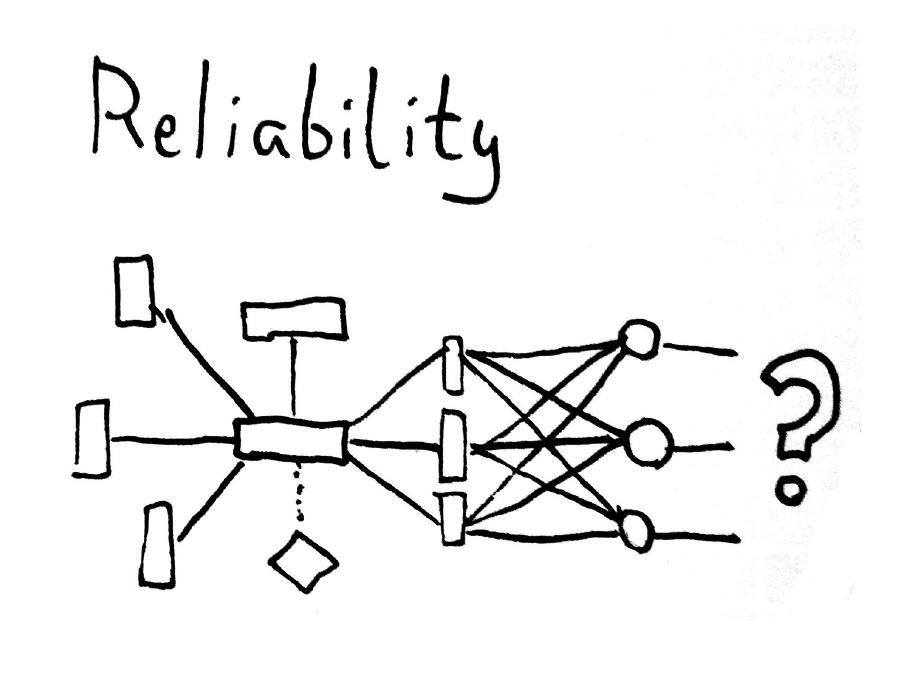 Reliability
?